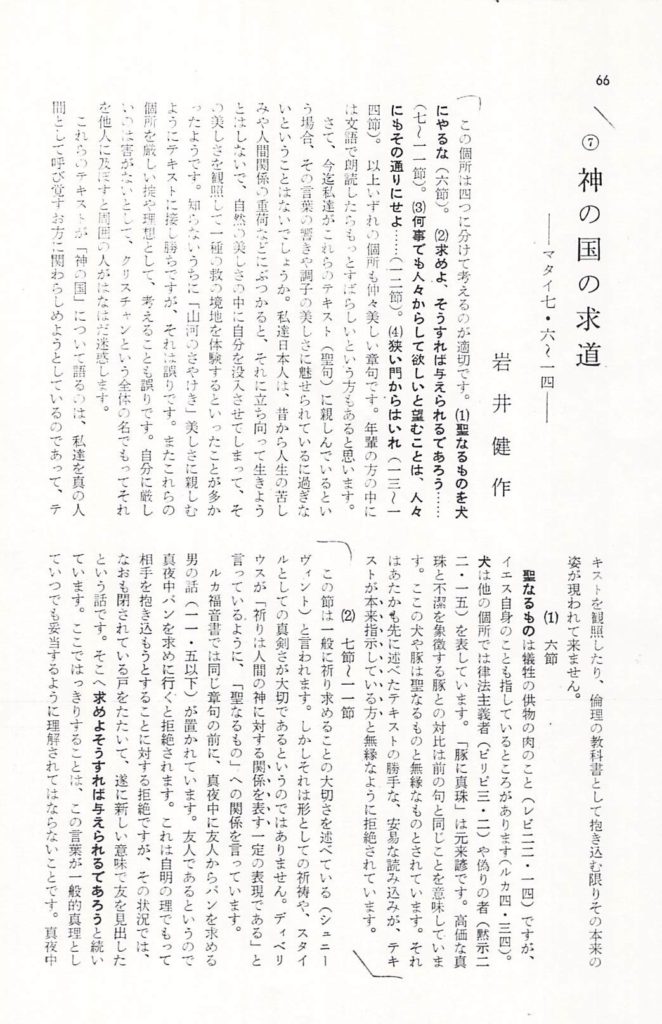 66
⑦ 神の国の求道
――マタイ七・六～一四――
岩井健作
この個所は四つに分けて考えるのが適切です。⑴聖なるものを犬
にやるな（六節）。⑵求めよ、そうすれば与えられるであろう……
（七～一一節）。⑶何事でも人々からして欲しいと望むことは、人々
にもその通りにせよ……（一二節）。⑷狭い門からはいれ（一三～一
四節）。以上いずれの個所も仲々美しい章句です。年輩の方の中に
は文語で朗読したらもっとすばらしいという方もあると思います。
さて、今迄私達がこれらのテキスト（聖句）に親しんでいるとい
う場合、その言葉の響きや調子の美しさに魅せられているに過ぎな
いということはないでしょうか。私達日本人は、昔から人生の苦し
みや人間関係の重荷などにぶつかると、それに立ち向って生きよう
とはしないで、自然の美しさの中に自分を没入させてしまって、そ
の美しさを観照して一種の救の境地を体験するといったことが多か
ったようです。知らないうちに「山河のさやけき」美しさに親しむ
ようにテキストに接し勝ちですが、それは誤りです。またこれらの
個所を厳しい掟や理想として、考えることも誤りです。自分に厳し
いのは害がないとして、クリスチャンという全体の名でもってそれ
を他人に及ぼすと周囲の人がはなはだ迷惑します。
これらのテキストが「神の国」について語るのは、私達を真の人
間として呼び覚すお方に関わらしめようとしているのであって、テ
キストを観照したり、倫理の教科書として抱き込む限りその本来の
姿が現われて来ません。
⑴ 六節
聖なるものは犠牲の供物の肉のこと（レビ二二・一四）ですが、
イエス自身のことも指しているところがあります（ルカ四・三四）。
犬は他の個所では律法主義者（ピリピ三・二）や偽りの者（黙示二
二・一五）を表しています。「豚に真珠」は元来諺です。高価な真
珠と不潔を象徴する豚との対比は前の句と同じことを意味していま
す。ここの犬や豚は聖なるものと無縁なものとされています。それ
はあたかも先に述べたテキストの勝手な、安易な読み込みが、テキ
ストが本来指示している方と無縁なように拒絶されています。
⑵ 七節～一一節
この節は一般に祈り求めることの大切さを述べている（シュニー
ヴィント）と言われます。しかしそれは形としての祈祷や、スタイ
ルとしての真剣さが大切であるというのではありません。ディベリ
ウスが「祈りは人間の神に対する関係を表す一定の表現である」と
言っているように、「聖なるもの」への関係を言っています。
ルカ福音書では同じ章句の前に、真夜中に友人からパンを求める
男の話（一一・五以下）が置かれています。友人であるというので
真夜中パンを求めに行くと拒絶されます。これは自明の理でもって
相手を抱き込もうとすることに対する拒絶ですが、その状況では、
なおも閉されている戸をたたいて、遂に新しい意味で友を見出した
という話です。そこへ求めよそうすれば与えられるであろうと続い
ています。ここではっきりすることは、この言葉が一般的真理とし
ていつでも妥当するように理解されてはならないことです。真夜中